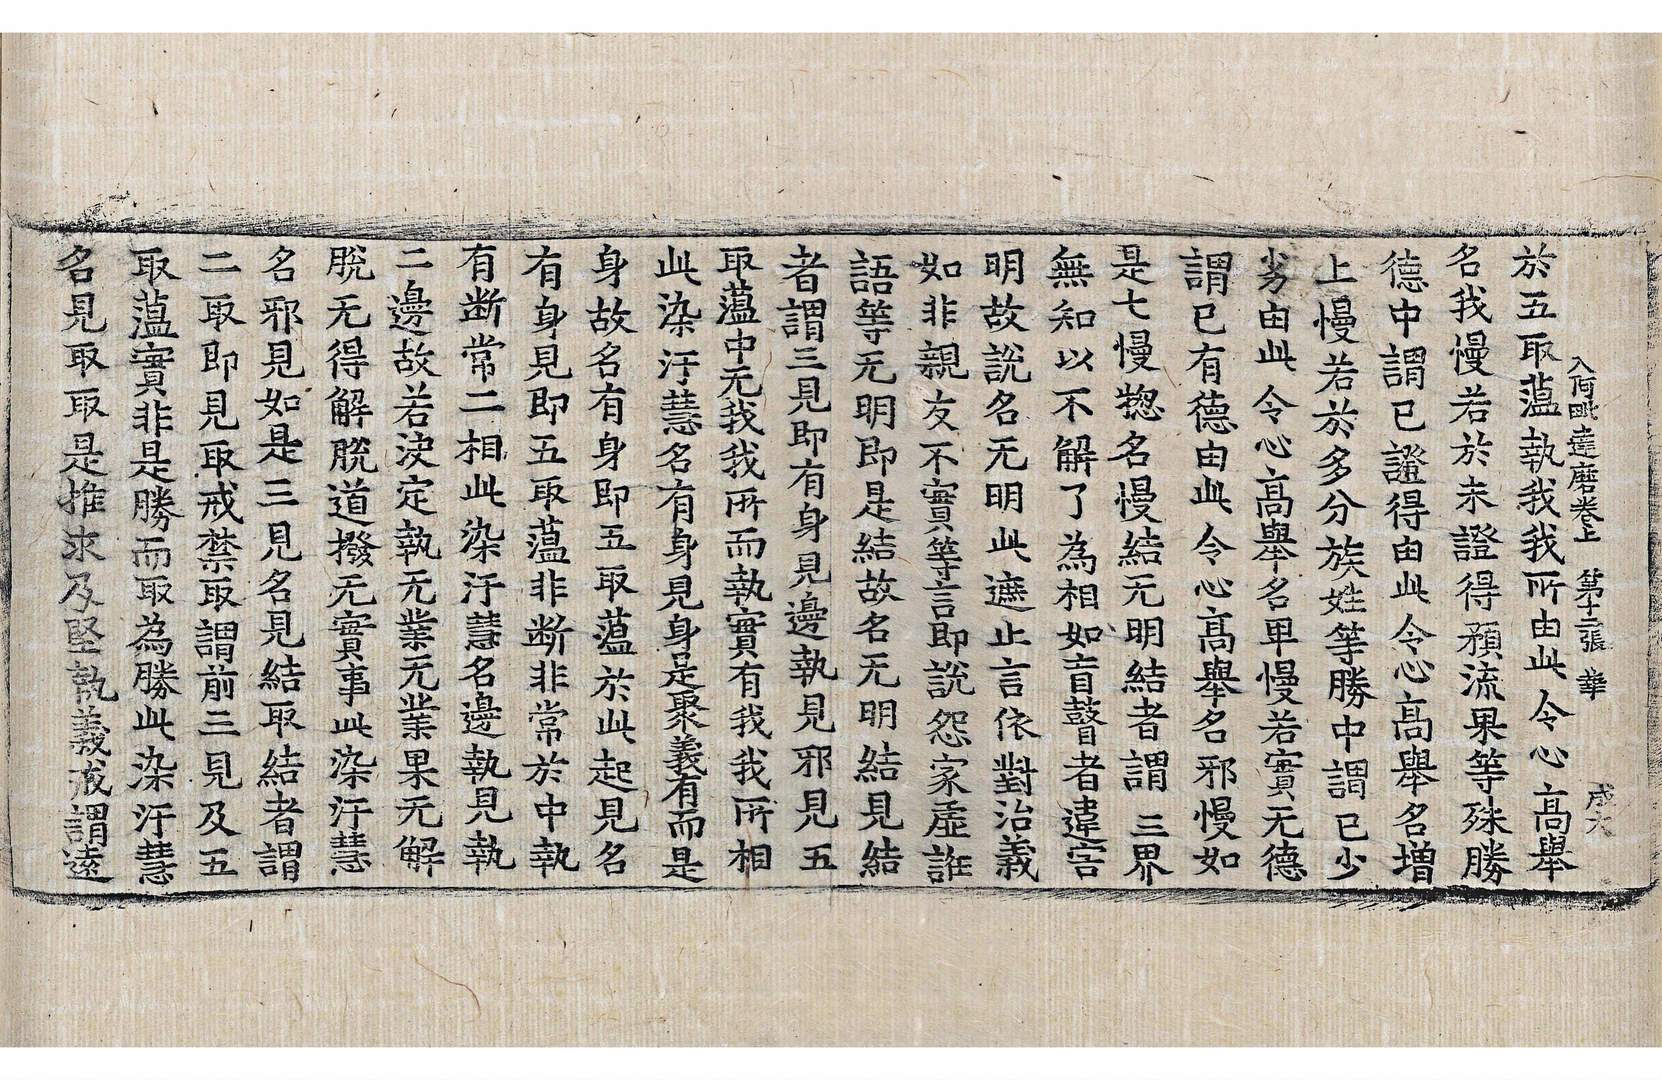 入阿毗達磨卷上 第十二張 華 成大
於五取薀執我我所由此令心高舉
名我慢若於未證得預流果等殊勝
德中謂已證得由此令心高舉名增
上慢若於多分族姓等勝中謂已少
劣由此令心高舉名卑慢若實无德
謂已有德由此令心高舉名邪慢如
是七慢惣名慢結无明結者謂三界
無知以不解了為相如盲瞽者違害
明故說名无明此遮止言依對治義
如非親友不實等言即說怨家虛誑
語等无明即是結故名无明結見結
者謂三見即有身見邊執見邪見五
取薀中无我我所而執實有我我所相
此染汙慧名有身見身是聚義有而是
身故名有身即五取薀於此起見名
有身見即五取薀非断非常於中執
有断常二相此染汙慧名邊執見執
二邊故若決定執无業无業果无解
脫无得解脫道撥无實事此染汙慧
名邪見如是三見名見結取結者謂
二取即見取戒禁取謂前三見及五
取薀實非是勝而取為勝此染汙慧
名見取取是推求及堅執義戒謂遠